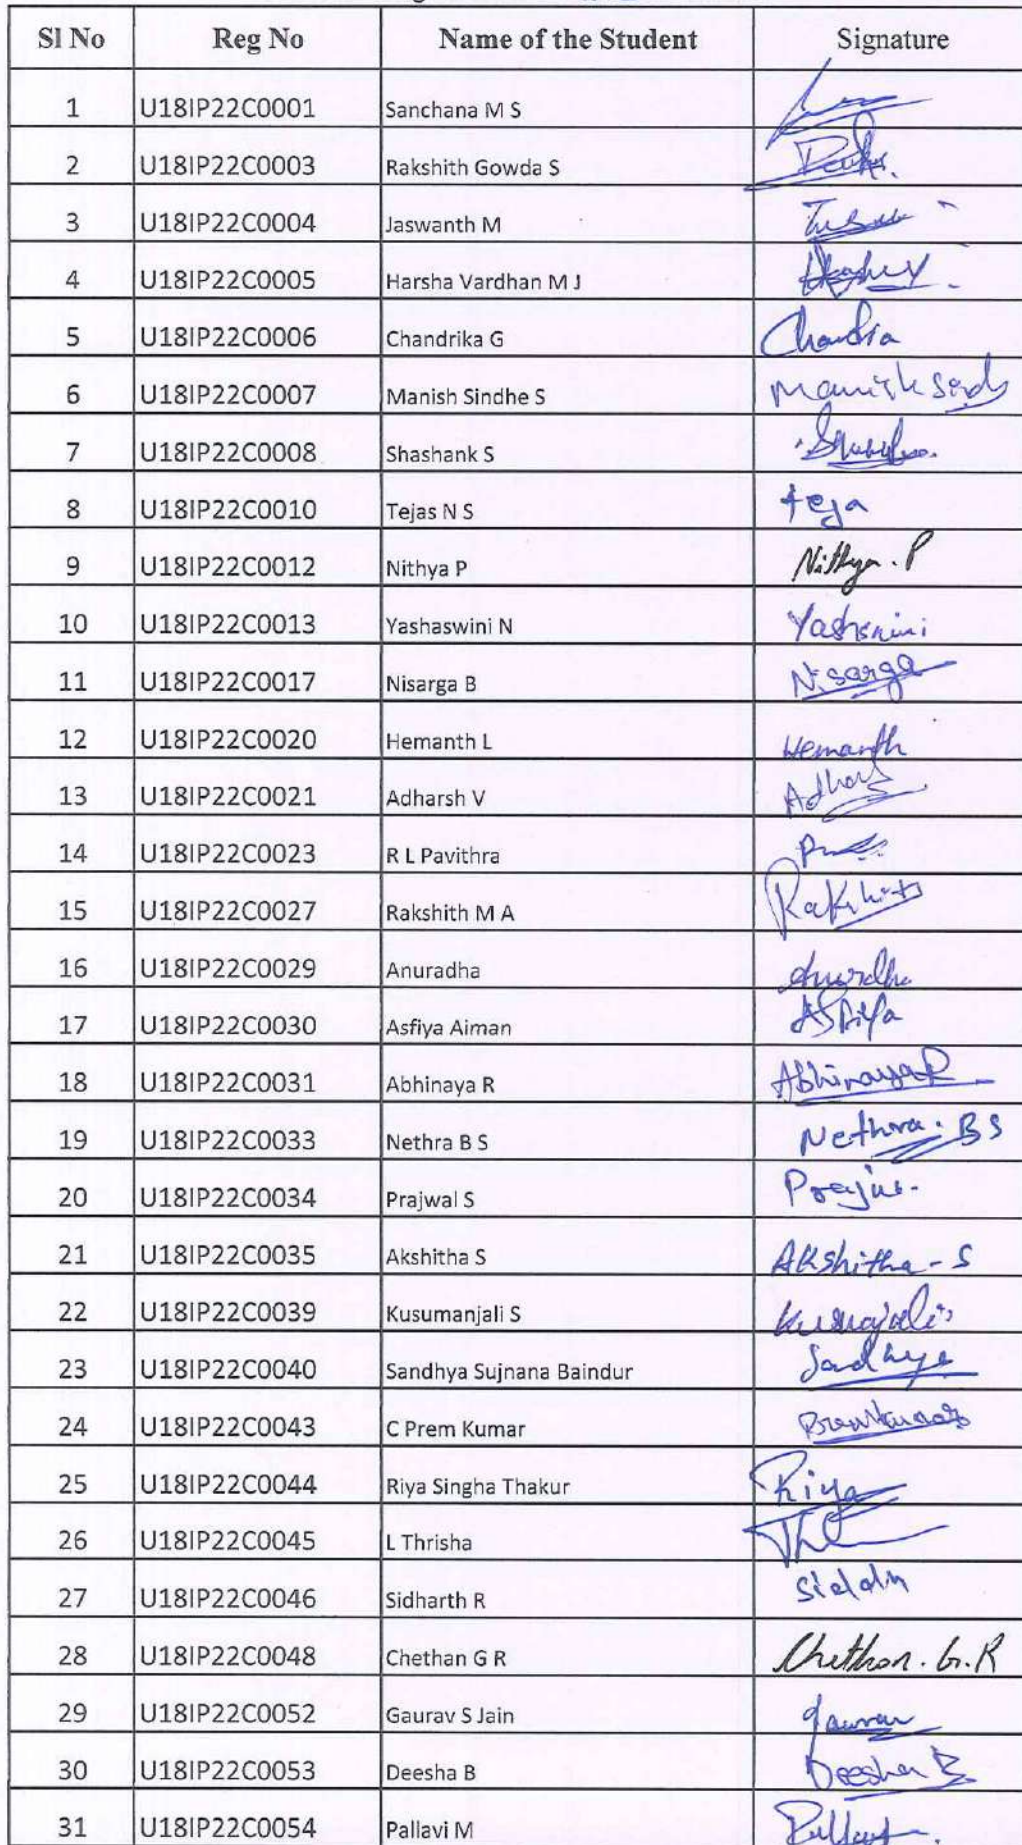 Sl No Reg No Name of the Student Signature
1 U18IP22C0001 Sanchana M S
2 U18IP22C0003 Rakshith Gowda S
3 U18IP22C0004 Jaswanth M
4 U18IP22C0005 Harsha Vardhan M J
5 U18IP22C0006 Chandrika G Chandra
6 U18IP22C0007 Manish Sindhe S Manish
7 U18IP22C0008 Shashank S
8 U18IP22C0010 Tejas N S teja
9 U18IP22C0012 Nithya P Nithya. P
10 U18IP22C0013 Yashaswini N
11 U18IP22C0017 Nisarga B Nisarga
12 U18IP22C0020 Hemanth L Hemanth
13 U18IP22C0021 Adharsh V
14 U18IP22C0023 R L Pavithra
15 U18IP22C0027 Rakshith M A
16 U18IP22C0029 Anuradha
17 U18IP22C0030 Asfiya Aiman Asfiya
18 U18IP22C0031 Abhinaya R Abhinaya R
19 U18IP22C0033 Nethra B S Nethra. B S
20 U18IP22C0034 Prajwal S
21 U18IP22C0035 Akshitha S Akshitha - S
22 U18IP22C0039 Kusumanjali S
23 U18IP22C0040 Sandhya Sujnana Baindur
24 U18IP22C0043 C Prem Kumar
25 U18IP22C0044 Riya Singha Thakur Riya
26 U18IP22C0045 L Thrisha
27 U18IP22C0046 Sidharth R
28 U18IP22C0048 Chethan G R Chethan. G. R
29 U18IP22C0052 Gaurav S Jain Gaurav
30 U18IP22C0053 Deesha B Deesha B
31 U18IP22C0054 Pallavi M